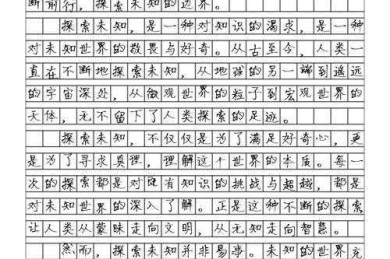 断前行，探索未知的边界。
探索未知，是一种对知识的渴求，是一种
对未知世界的敬畏与好奇。从古至今，人类一
直在不断地探索未知，从地球的另一端到遥远
的宇宙深处，从微观世界的粒子到宏观世界的
天体，无不留下了人类探索的足迹。
探索未知，不仅仅是为了满足好奇心，更
是为了寻求真理，理解这个世界的本质。每一
次的探索都是对既有知识的挑战与超越，都是
对未知世界的深入了解。正是这种不断的探索
让人类从蒙昧走向文明，从无知走向智慧。
然而，探索未知并非易事。未知的世界充